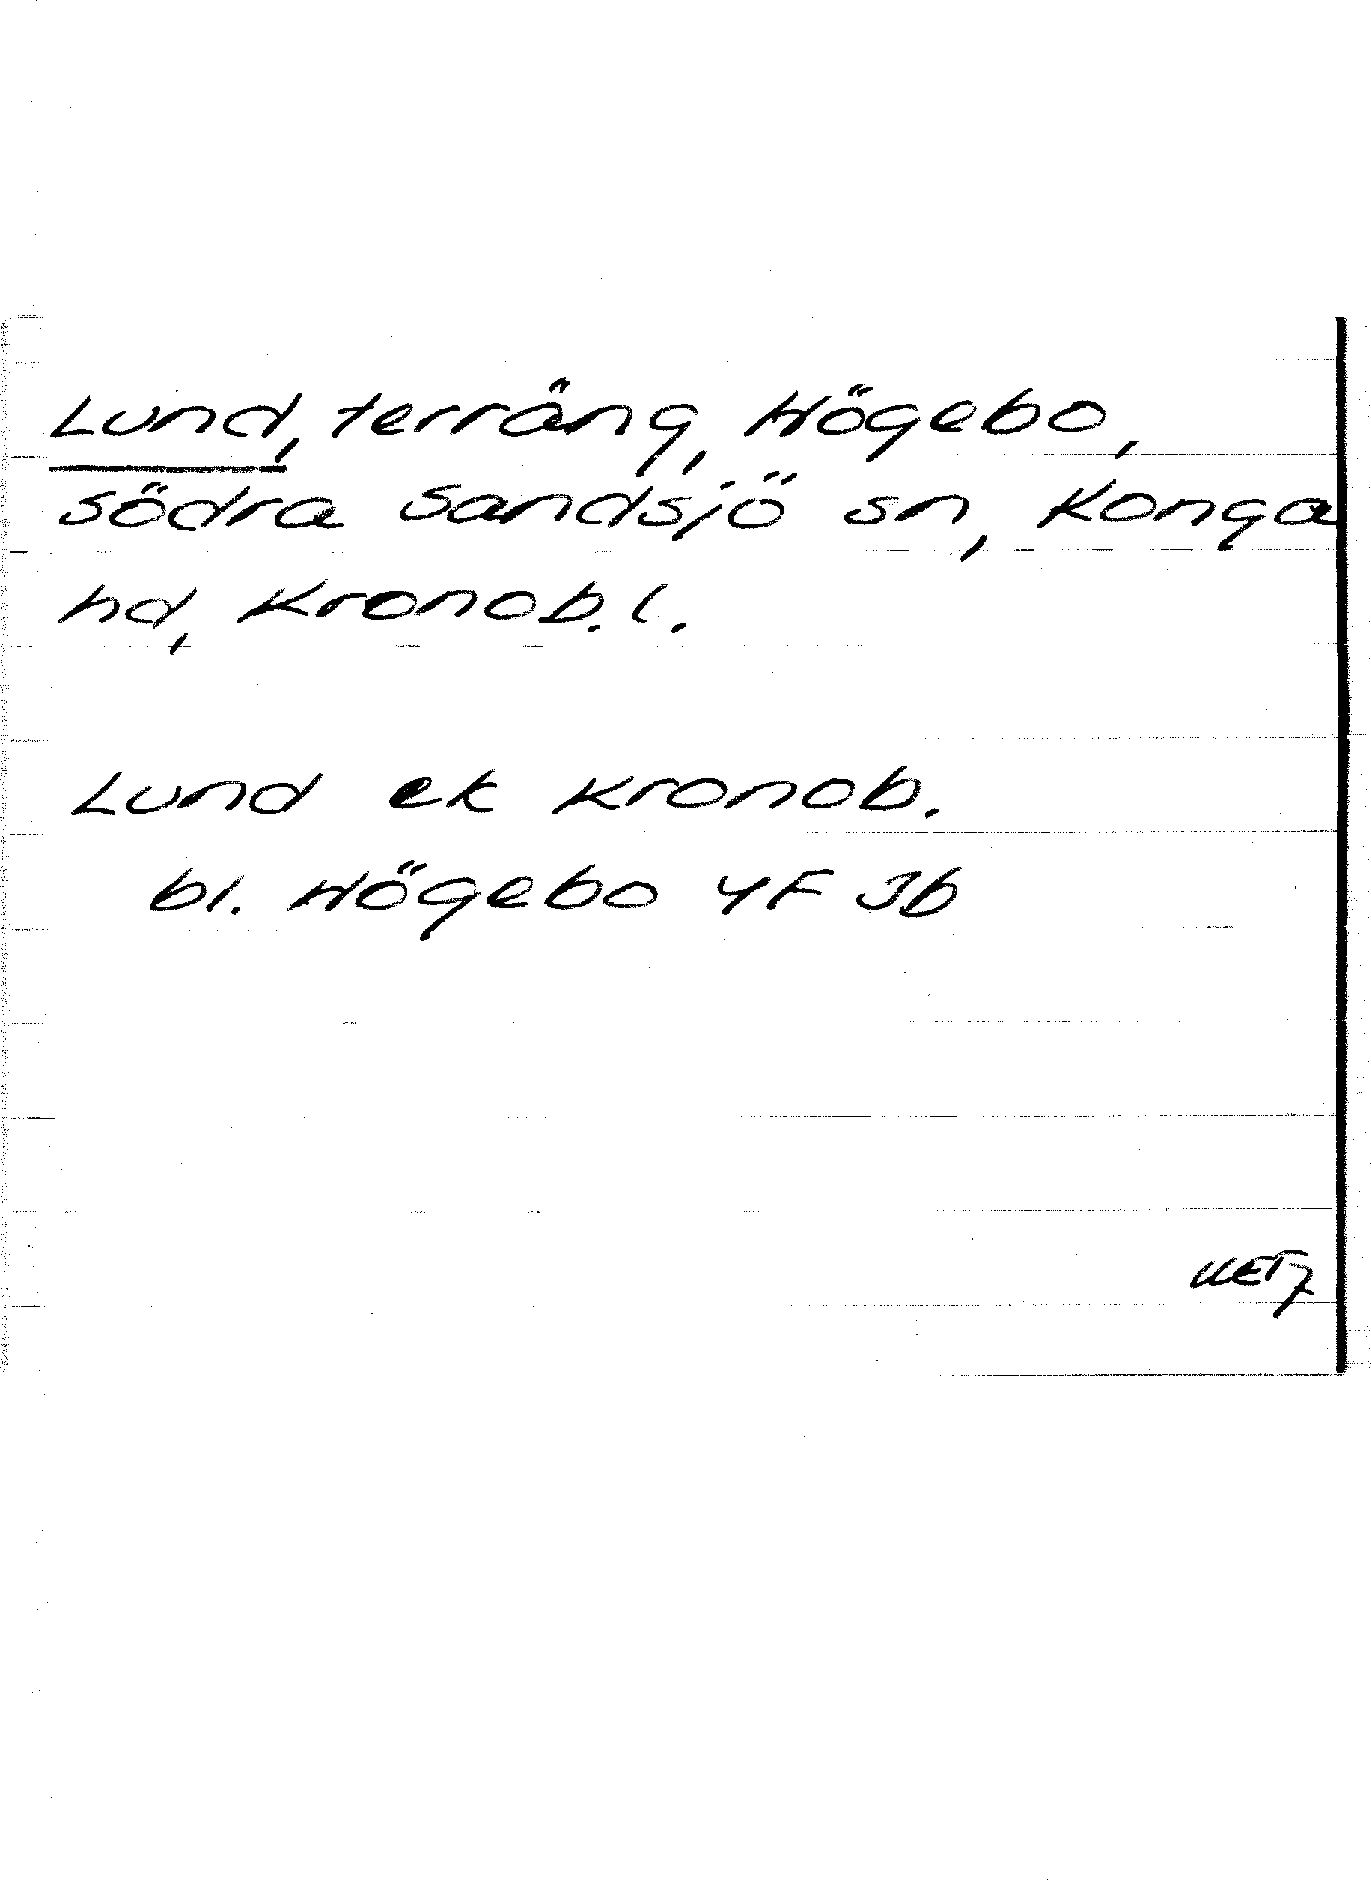 Lund, terräng, Högebo,
södra Sandsjö sn, Konga
hd, Kronob. l.
Lund ek Kronob.
bl. Högebo 4F Jb